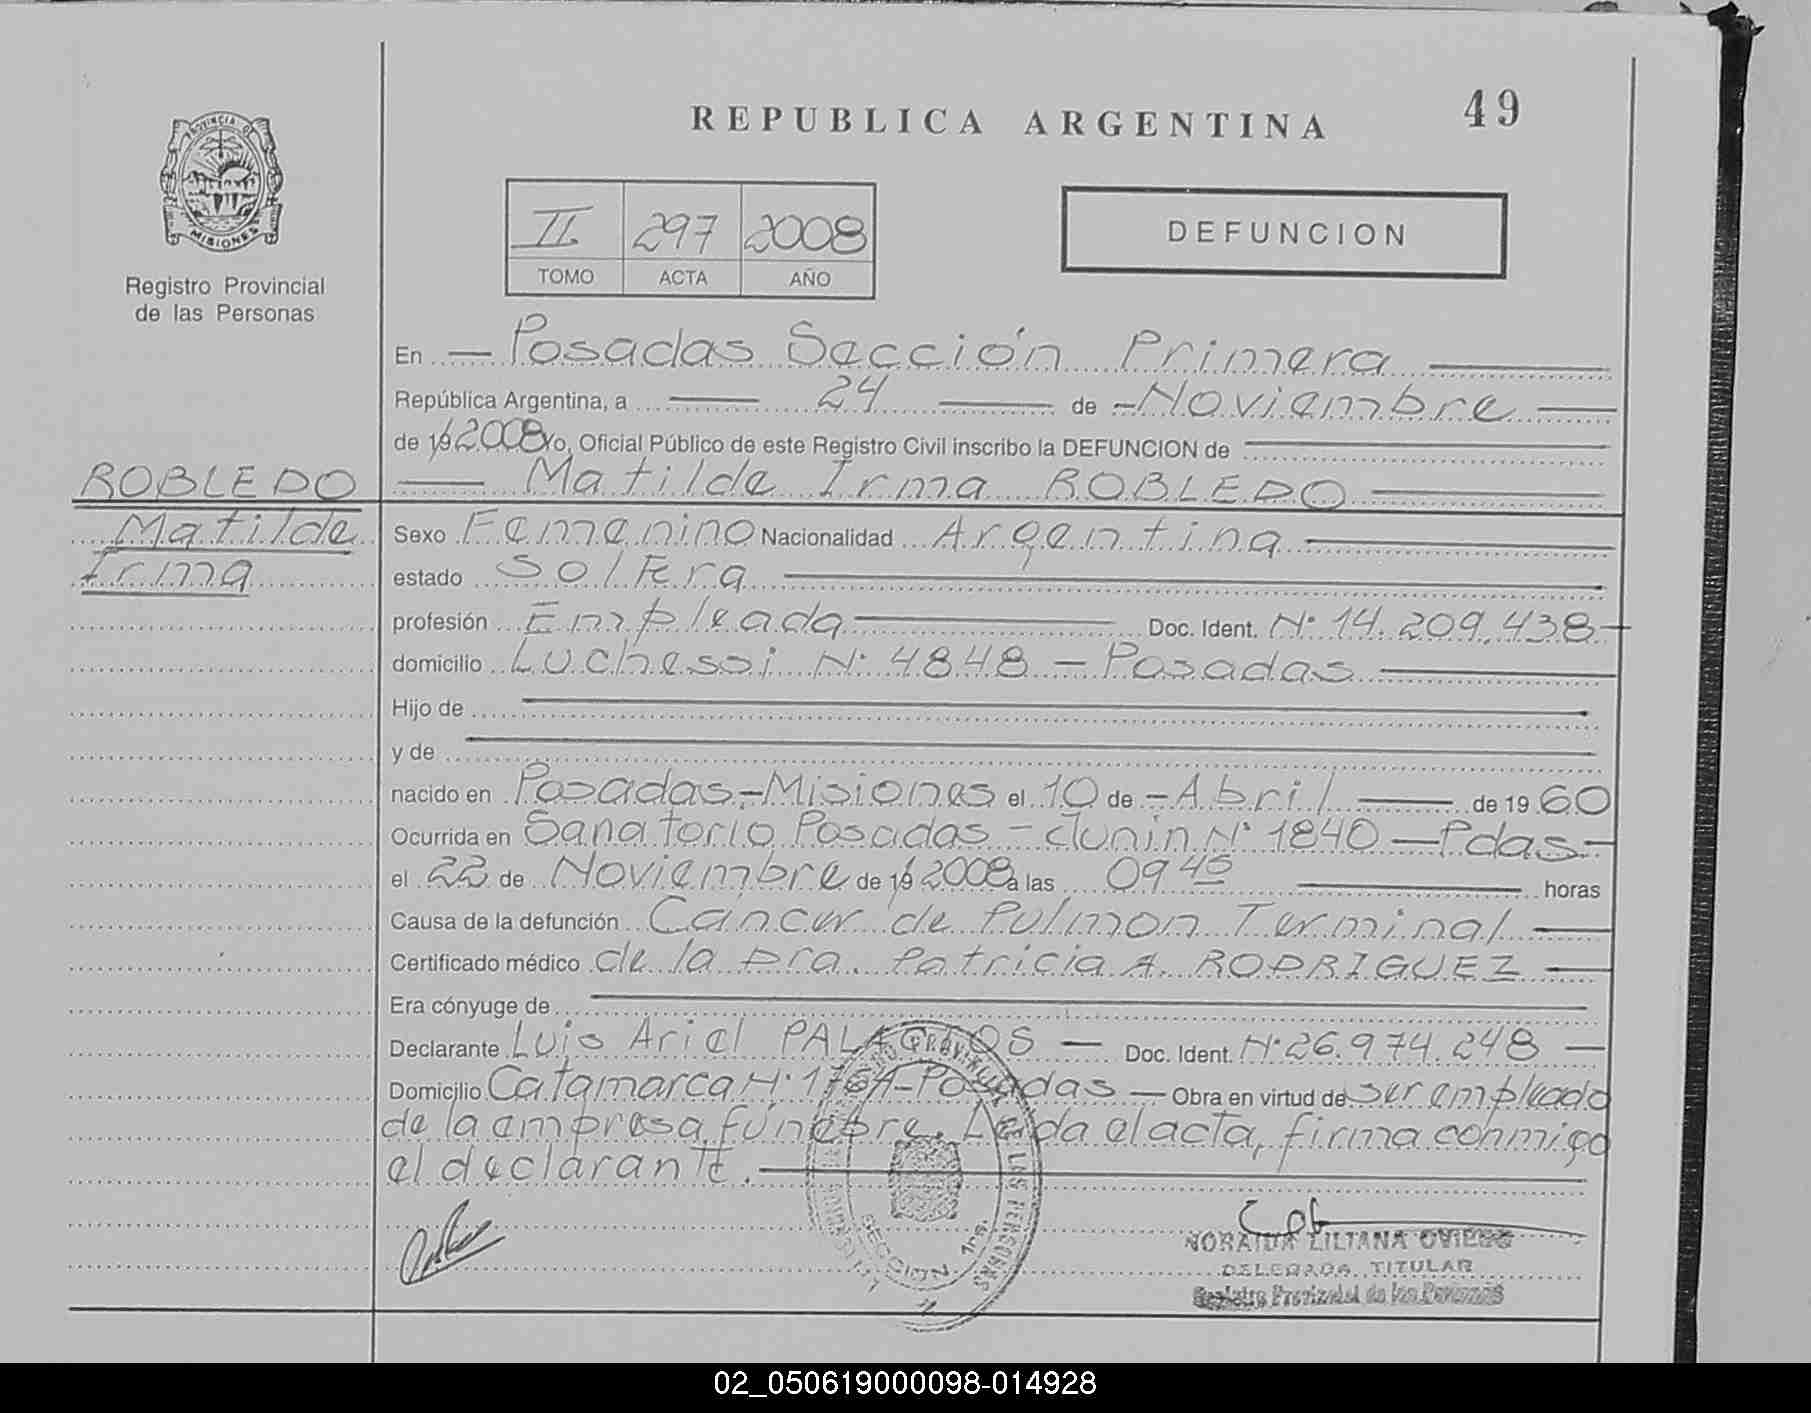 REPUBLICA ARGENTINA
49
PROVINCIA DE
MISIONES
Registro Provincial
de las Personas
II 297 2008
TOMO ACTA AÑO
DEFUNCION
En Posadas Sección Primera
República Argentina, a 24 de Noviembre
de 19 2008 Yo, Oficial Público de este Registro Civil inscribo la DEFUNCION de
Matilde Irma ROBLEDO
ROBLEDO
Matilde
Irma
Sexo Femenino Nacionalidad Argentina
estado Soltera
profesión Empleada Doc. Ident. N° 14.209.438
domicilio Luchessi N° 4848 - Posadas
Hijo de
y de
nacido en Posadas - Misiones el 10 de Abril de 1960
Ocurrida en Sanatorio Posadas - Junin N° 1840 - Pdas -
el 22 de Noviembre de 19 2008 a las 09 45 horas
Causa de la defunción Cáncer de Pulmon Terminal
Certificado médico de la Dra. Patricia A. RODRIGUEZ
Era cónyuge de
Declarante Luis Ariel PALACIOS - Doc. Ident. N° 26.974.248 -
Domicilio Catamarca N° 1764 - Posadas - Obra en virtud de ser empleado
de la empresa fúnebre. Leida el acta, firma conmigo
el declarante.
SECCION 1ra.
NORAIDA LILIANA OVIEDO
DELEGADA TITULAR
Registro Provincial de las Personas
02_050619000098-014928